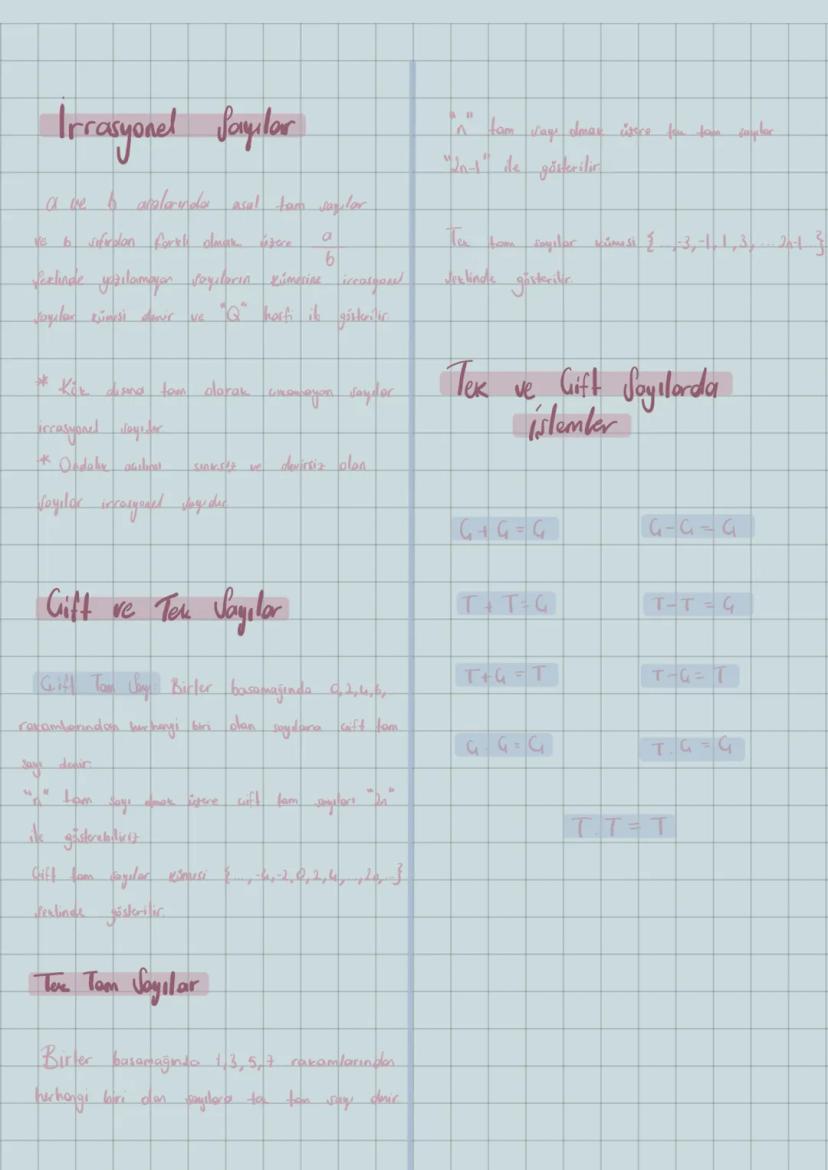 İrrasyonel Sayılar
a ve b aralarında asal tam sayılar
ve b sıfırdan farklı olmak üzere a/b
şeklinde yazılamayan sayıların kümesine irrasyonel
sayılar kümesi denir ve "Q" harfi ile gösterilir
* Kök dışına tam olarak çıkamayan sayılar
irrasyonel sayılar
* Ondalık açılımı sınırsız ve devirsiz olan
sayılar irrasyonel sayıdır
Çift ve Tek Sayılar
Çift Tam Sayı Birler basamağında 0,2,4,6,
rakamlarından herhangi biri olan sayılara çift tam
sayı denir
"n" tam sayı olmak üzere çift tam sayıları "2n"
ile gösterebiliriz
Çift tam sayılar kümesi {...,-4,-2,0,2,4,...,2n,...}
şeklinde gösterilir.
Tek Tam Sayılar
Birler basamağında 1,3,5,7 rakamlarından
herhangi biri olan sayılara tek tam sayı denir
"n" tam sayı olmak üzere tek tam sayılar
"2n-1" ile gösterilir
Tek tam sayılar kümesi {...,-3,-1,1,3,...2n-1...}
şeklinde gösterilir
Tek ve Çift Sayılarda
İşlemler
Ç+Ç=Ç Ç-Ç=Ç
T+T=Ç T-T=Ç
T+Ç=T T-Ç=T
Ç.Ç=Ç T.Ç=Ç
T.T=T